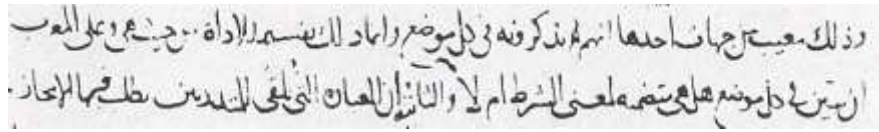 وذلك معيب من جهات أحدها انهم لا يذكرونه في كل موضع وانما ذلك تفسير للاداة من حيث هي وعلى المعرب
ان يبين في كل موضع هل هي متضمنة لمعنى الشرط ام لا والثاني ان العبارة التي تلقى للمتدينين يطلب فيها الايجاز